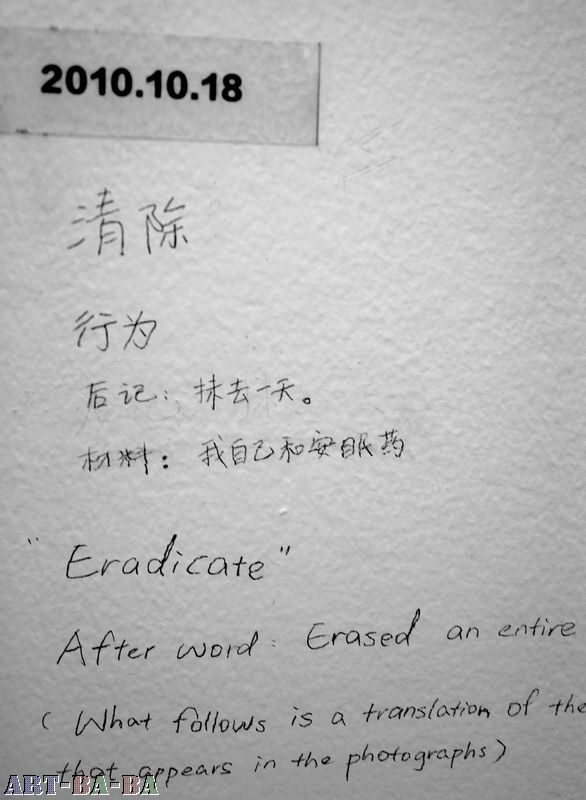 2010.10.18
清除
行为
后记：抹去一天。
材料：我自己和安眠药
"Eradicate"
After word: Erased an entire
(What follows is a translation of the
that appears in the photographs)
ART-BA-BA